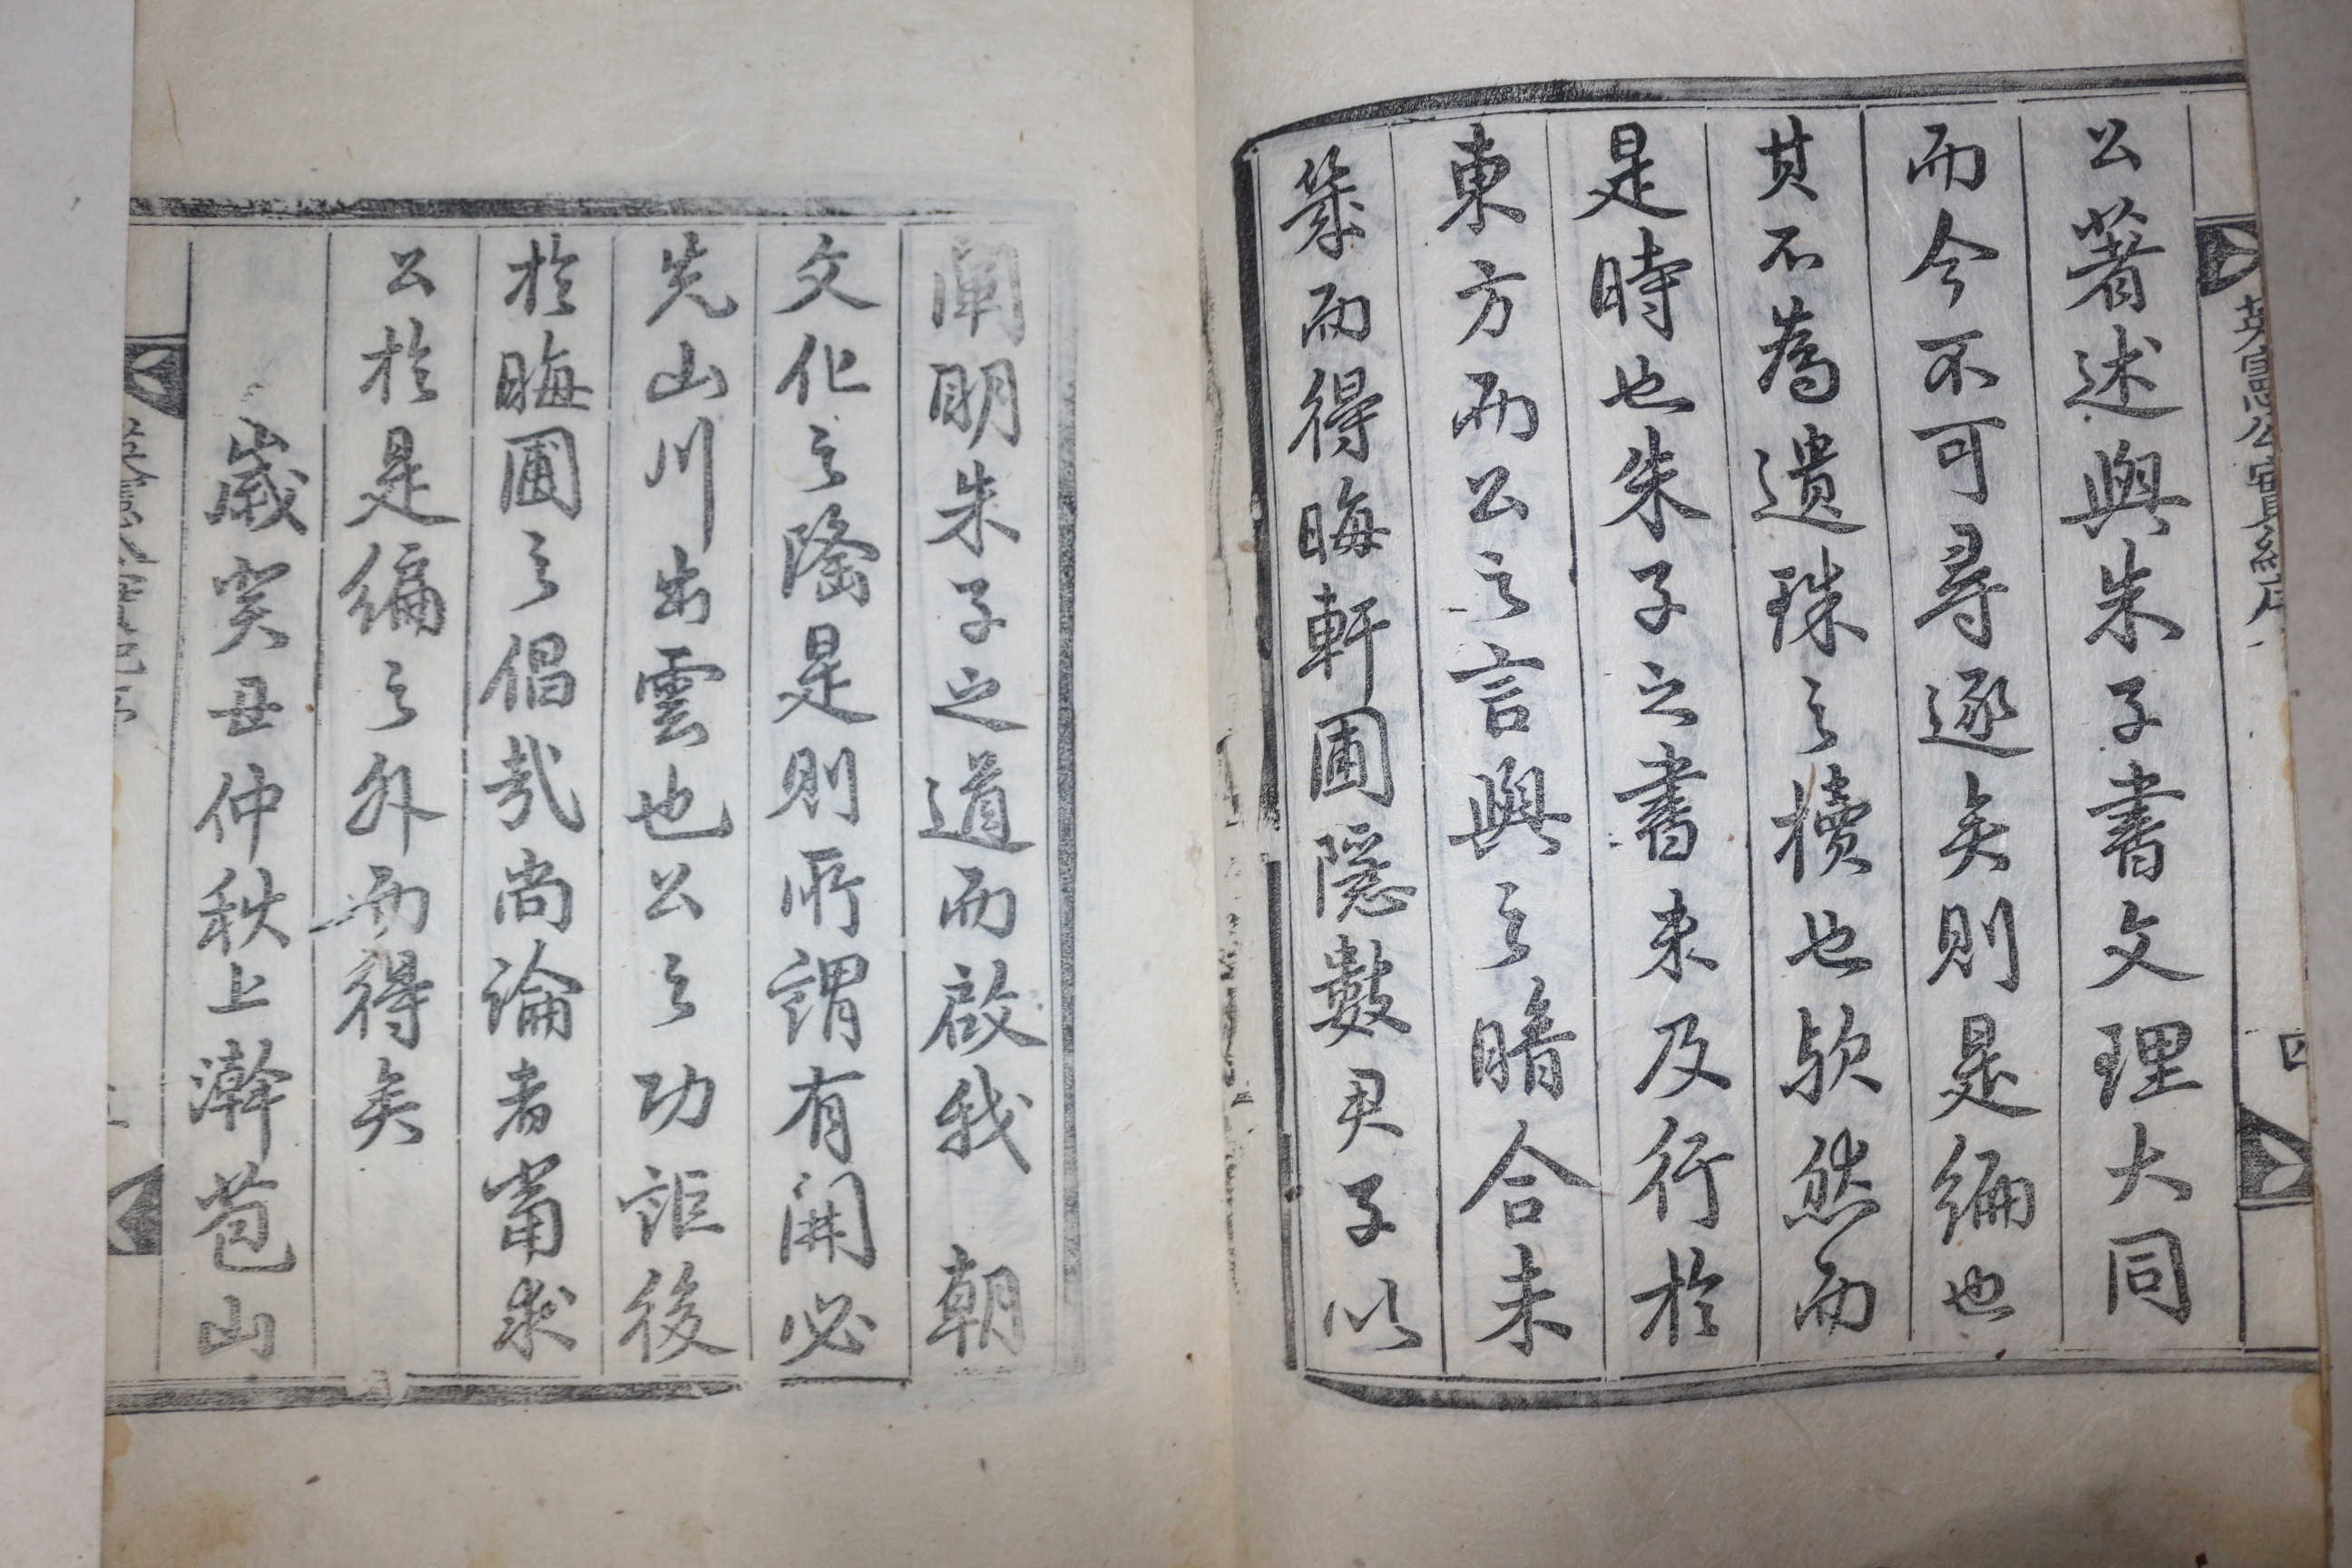 公著述與朱子書文理大同
而今不可尋逐矣則是編也
其不為遺珠之櫝也歟然而
是時也朱子之書未及行於
東方而公之言與之暗合未
幾而得晦軒圃隱數君子以
闡明朱子之道而啟我 朝
文化之隆是則所謂有開必
先山川出雲也公之功詎後
於晦圃之倡哉尚論者當求
公於是編之外而得矣
歲癸丑仲秋上澣苞山